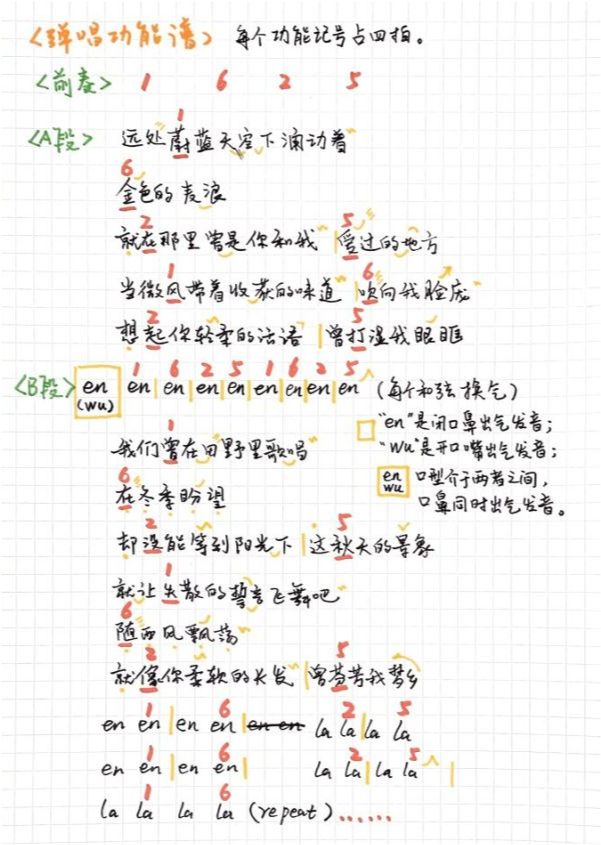 <弹唱功能谱> 每个功能记号占四拍。
<前奏> 1 6 2 5
1
<A段> 远处蔚蓝天空下涌动着
6
金色的麦浪
2 5
就在那里曾是你和我 | 爱过的地方
1 6
当微风带着收获的味道 | 吹向我脸庞
2 5
想起你轻柔的话语 | 曾打湿我眼眶
1 6 2 5 1 6 2 5
<B段> en (wu) en | en | en | en | en | en | en | en (每个和弦换气)
"en"是闭口鼻出气发音;
1
我们曾在田野里歌唱
"wu"是开口嘴出气发音;
6
在冬季盼望
en wu 口型介于两者之间,
口鼻同时出气发音。
2 5
却没能等到阳光下 | 这秋天的景象
1
就让失散的誓言飞舞吧
6
随西风飘荡
2 5
就像你柔软的长发 | 曾芬芳我梦乡
1 6 2 5
en en | en en | en en la la | la la
1 6 2 5
en en | en en | la la | la la |
1 6
la la la la (repeat)......